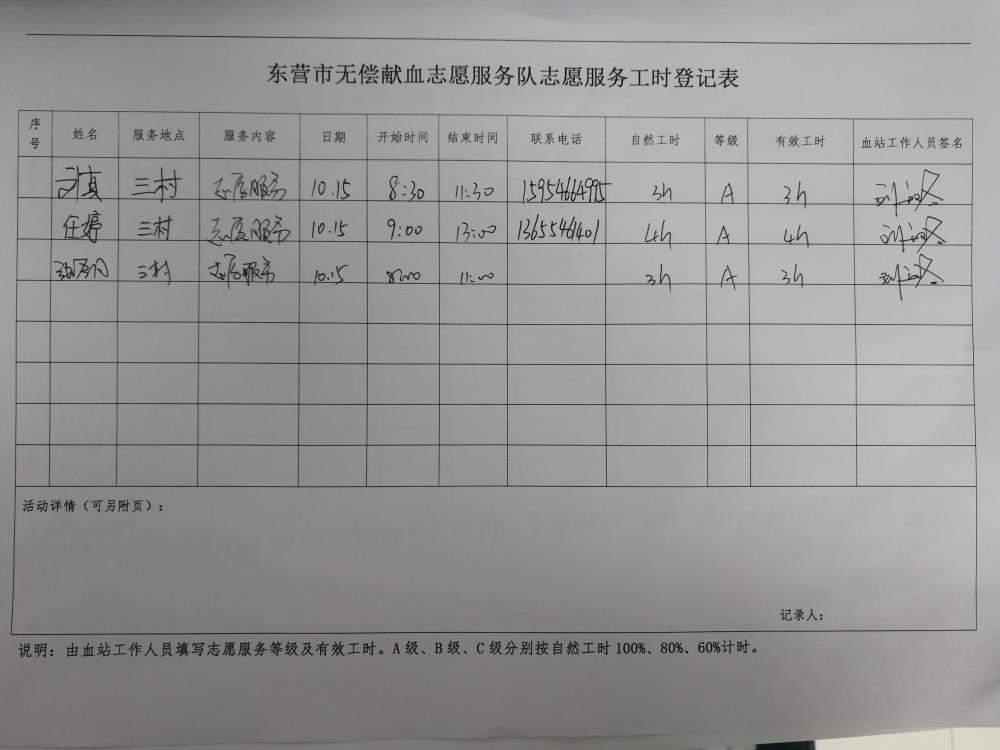 东营市无偿献血志愿服务队志愿服务工时登记表
序号 姓名 服务地点 服务内容 日期 开始时间 结束时间 联系电话 自然工时 等级 有效工时 血站工作人员签名
刘真 三村 志愿服务 10.15 8:30 11:30 15954664995 3h A 3h
任婷 三村 志愿服务 10.15 9:00 13:00 13655461401 4h A 4h
三村 志愿服务 10.15 8:00 11:00 3h A 3h
活动详情（可另附页）：
记录人：
说明：由血站工作人员填写志愿服务等级及有效工时。A级、B级、C级分别按自然工时100%、80%、60%计时。